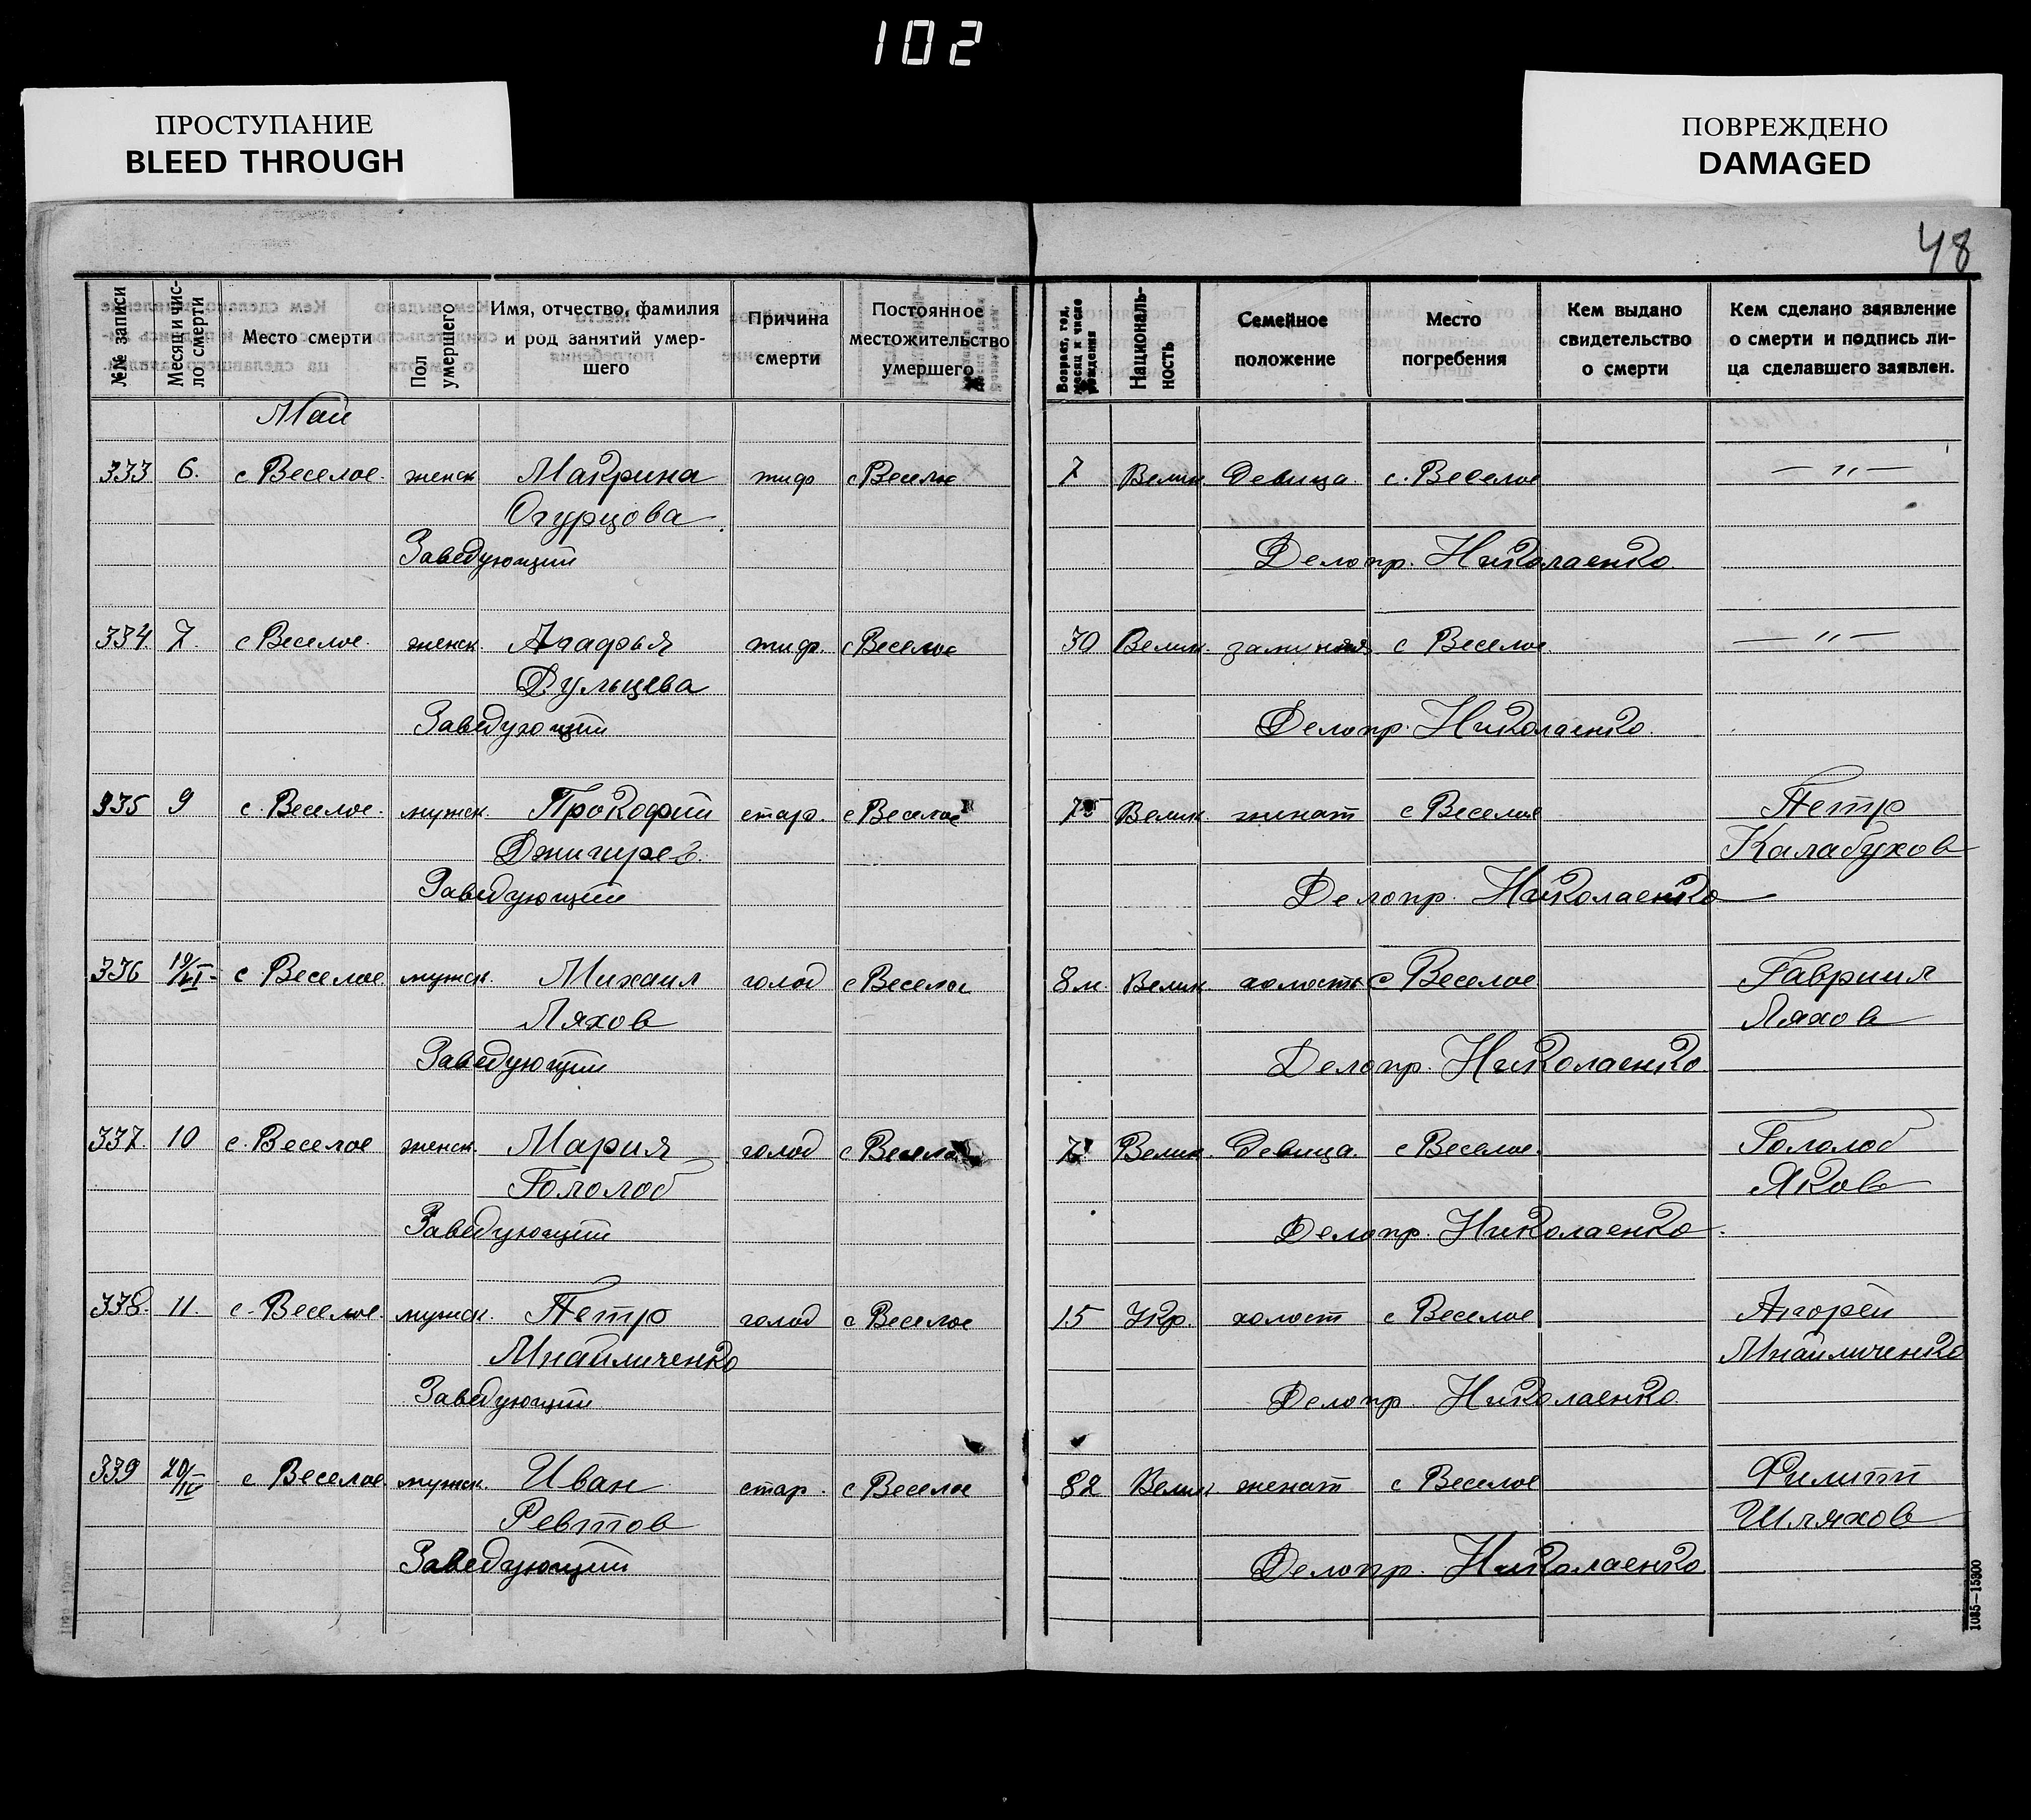 102
ПРОСТУПАНИЕ
BLEED THROUGH
ПОВРЕЖДЕНО
DAMAGED
48
№№ записи
Месяц и чис-
ло смерти
Место смерти
Пол
умершего
Имя, отчество, фамилия
и род занятий умер-
шего
Причина
смерти
Постоянное
местожительство
умершего
Возраст, год,
месяц и число
рождения
Националь-
ность
Семейное
положение
Место
погребения
Кем выдано
свидетельство
о смерти
Кем сделано заявление
о смерти и подпись ли-
ца сделавшего заявлен.
Май
333 6. с Веселое. женск Макрина тиф с Веселое 7 Велик. девица. с. Веселое — " —
Огурцова
Заведующий Делопр. Николаенко
334. 7. с Веселое. женск. Агафья тиф. с Веселое 30 Велик. с Веселое — " —
Дульцева
Заведующий Делопр. Николаенко.
335 9 с. Веселое. мужск. Прокофий стар. с Веселое 75 Велик. женат с Веселое Петр
Джигирев. Калабухов
Заведующий Делопр. Николаенко
336 19/VI с. Веселое мужск. Михаил голод с Веселое 8 м. Велик. холость с Веселое Гавриил
Ляхов Ляхов
Заведующий Делопр. Николаенко
337. 10 с. Веселое женск. Мария голод с Веселое 7 Велик. девица. с Веселое. Гололоб
Гололоб Яков
Заведующий Делопр. Николаенко.
338. 11. с. Веселое. мужск. Петр голод с Веселое 15 Укр. холост с Веселое Андрей
Михайличенко Михайличенко
Заведующий Делопр. Николаенко.
339 20/IV с Веселое. мужск. Иван стар. с Веселое 82 Велик женат с Веселое Филипп
Ревтов Шляхов
Заведующий Делопр. Николаенко.
1085—15300